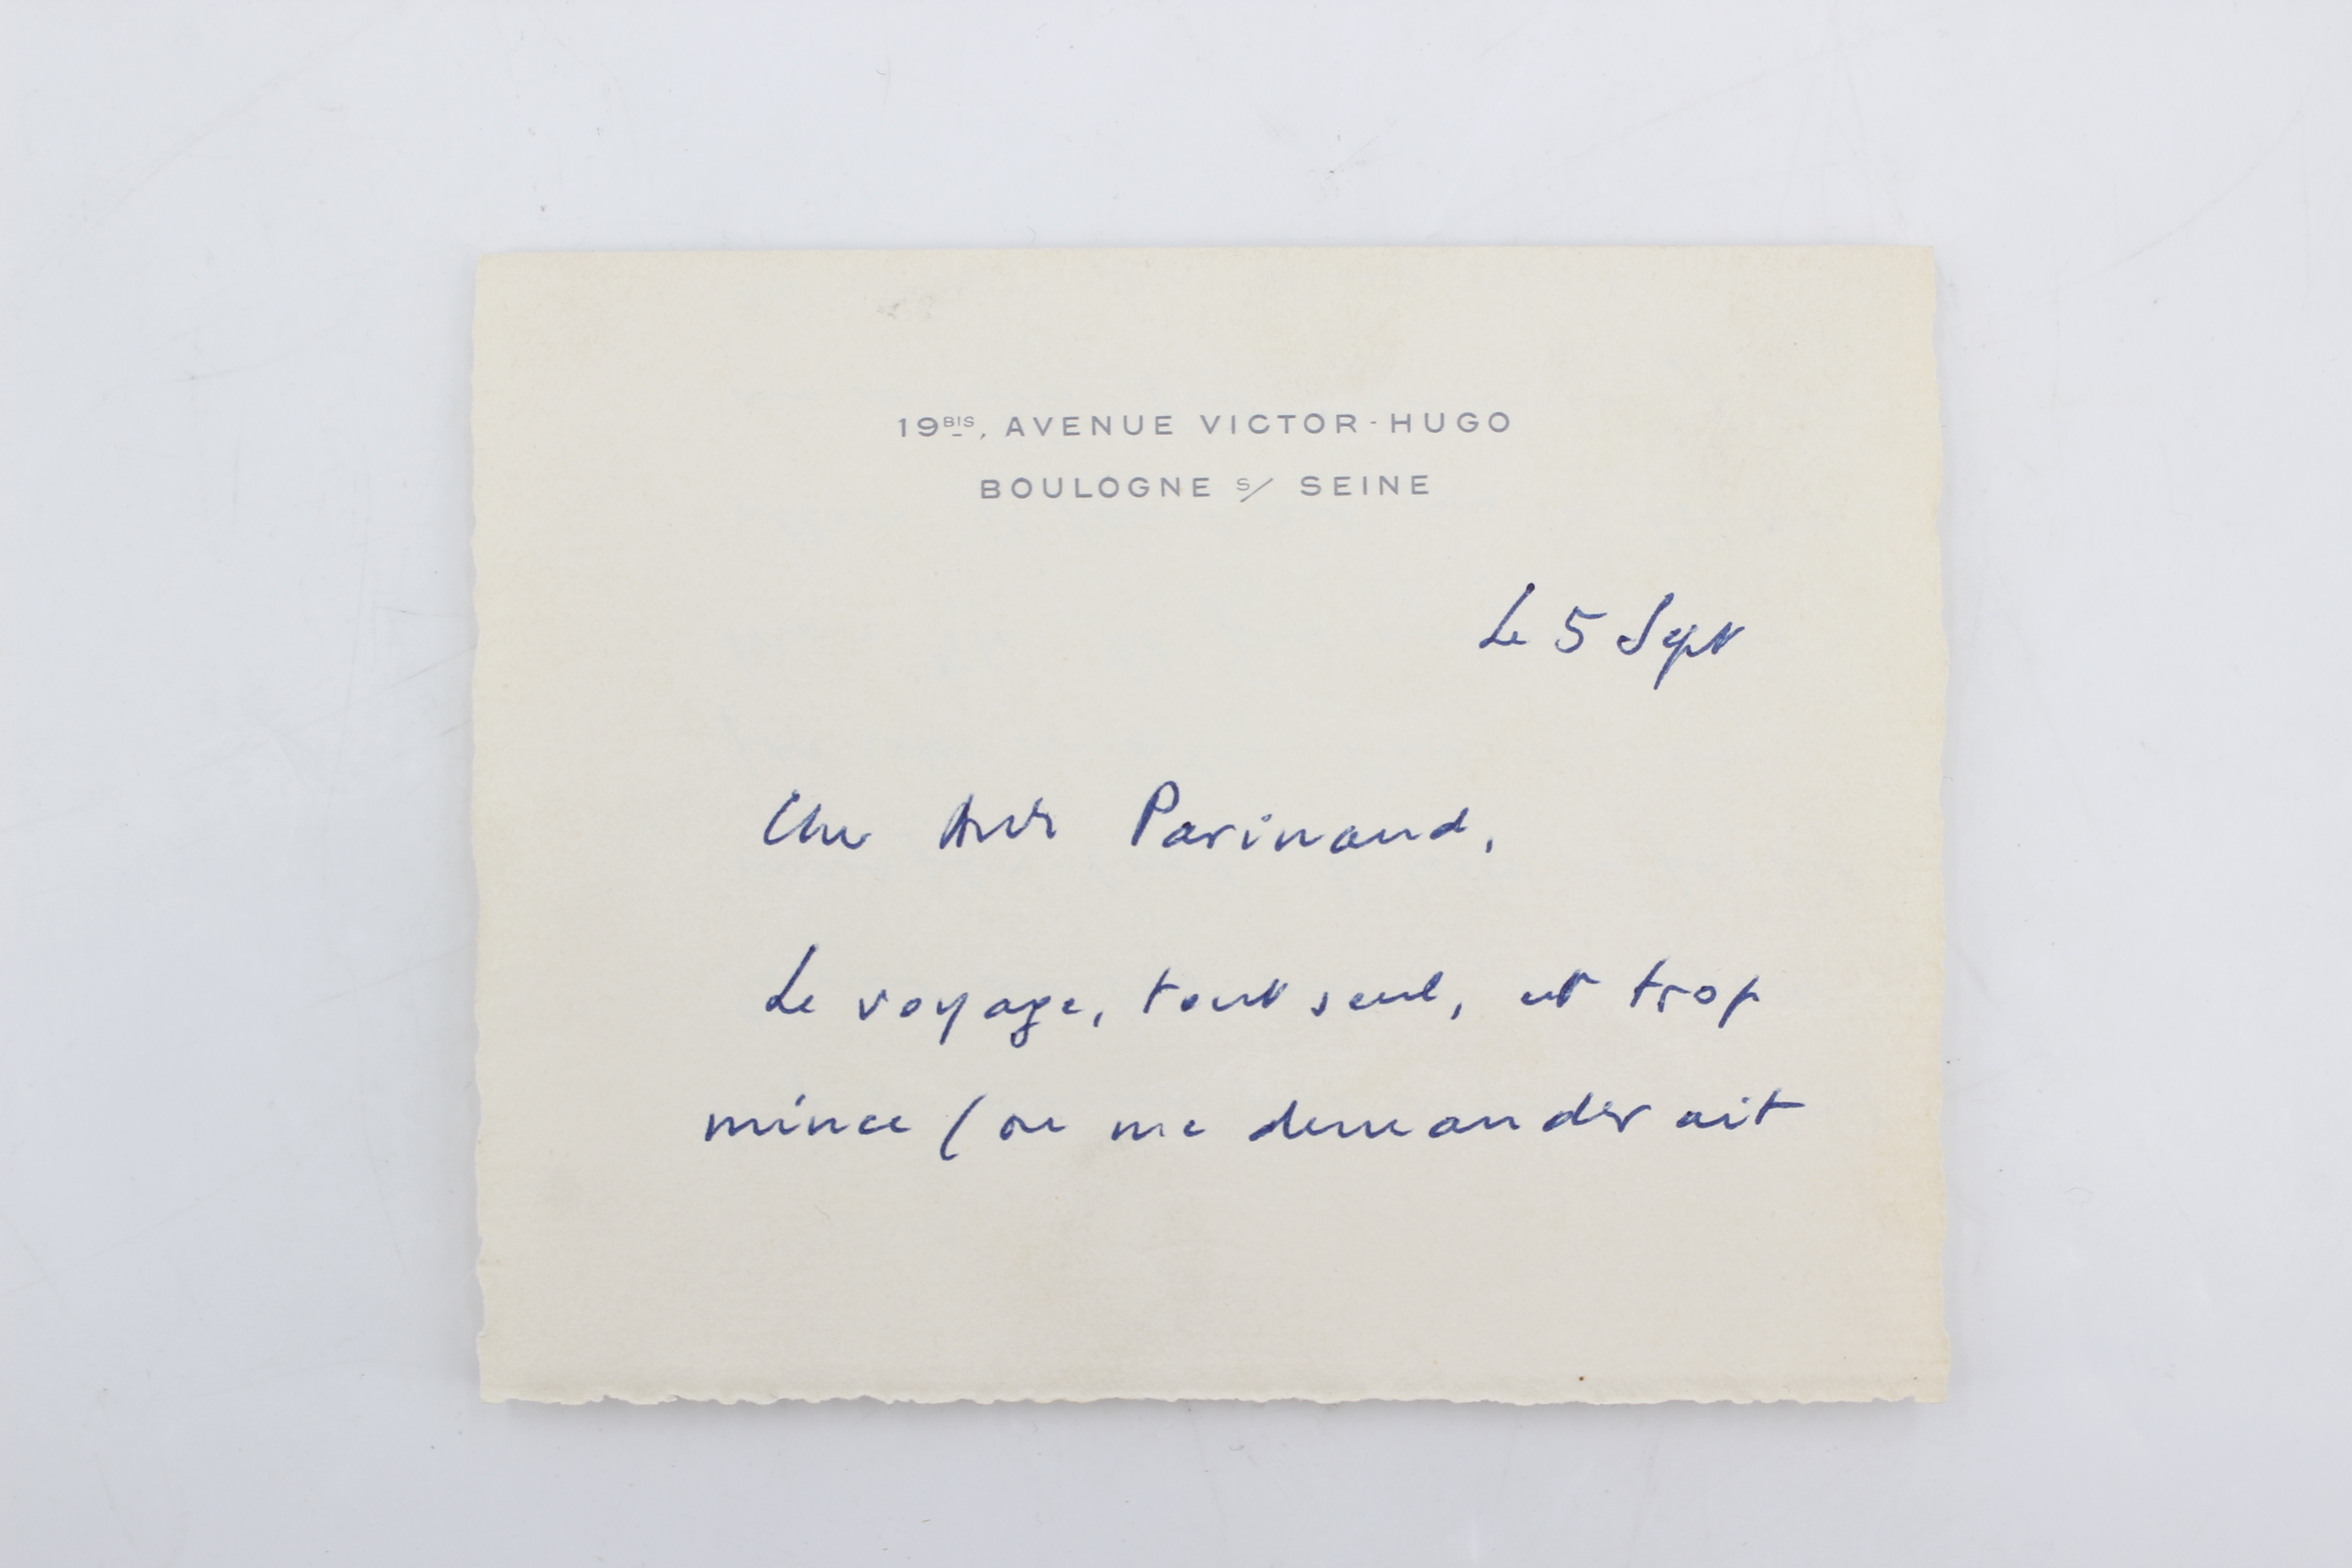 19BIS, AVENUE VICTOR-HUGO
BOULOGNE S/ SEINE
Le 5 Sept
Cher André Parinaud,
Le voyage, tout seul, est trop
mince (on me demanderait